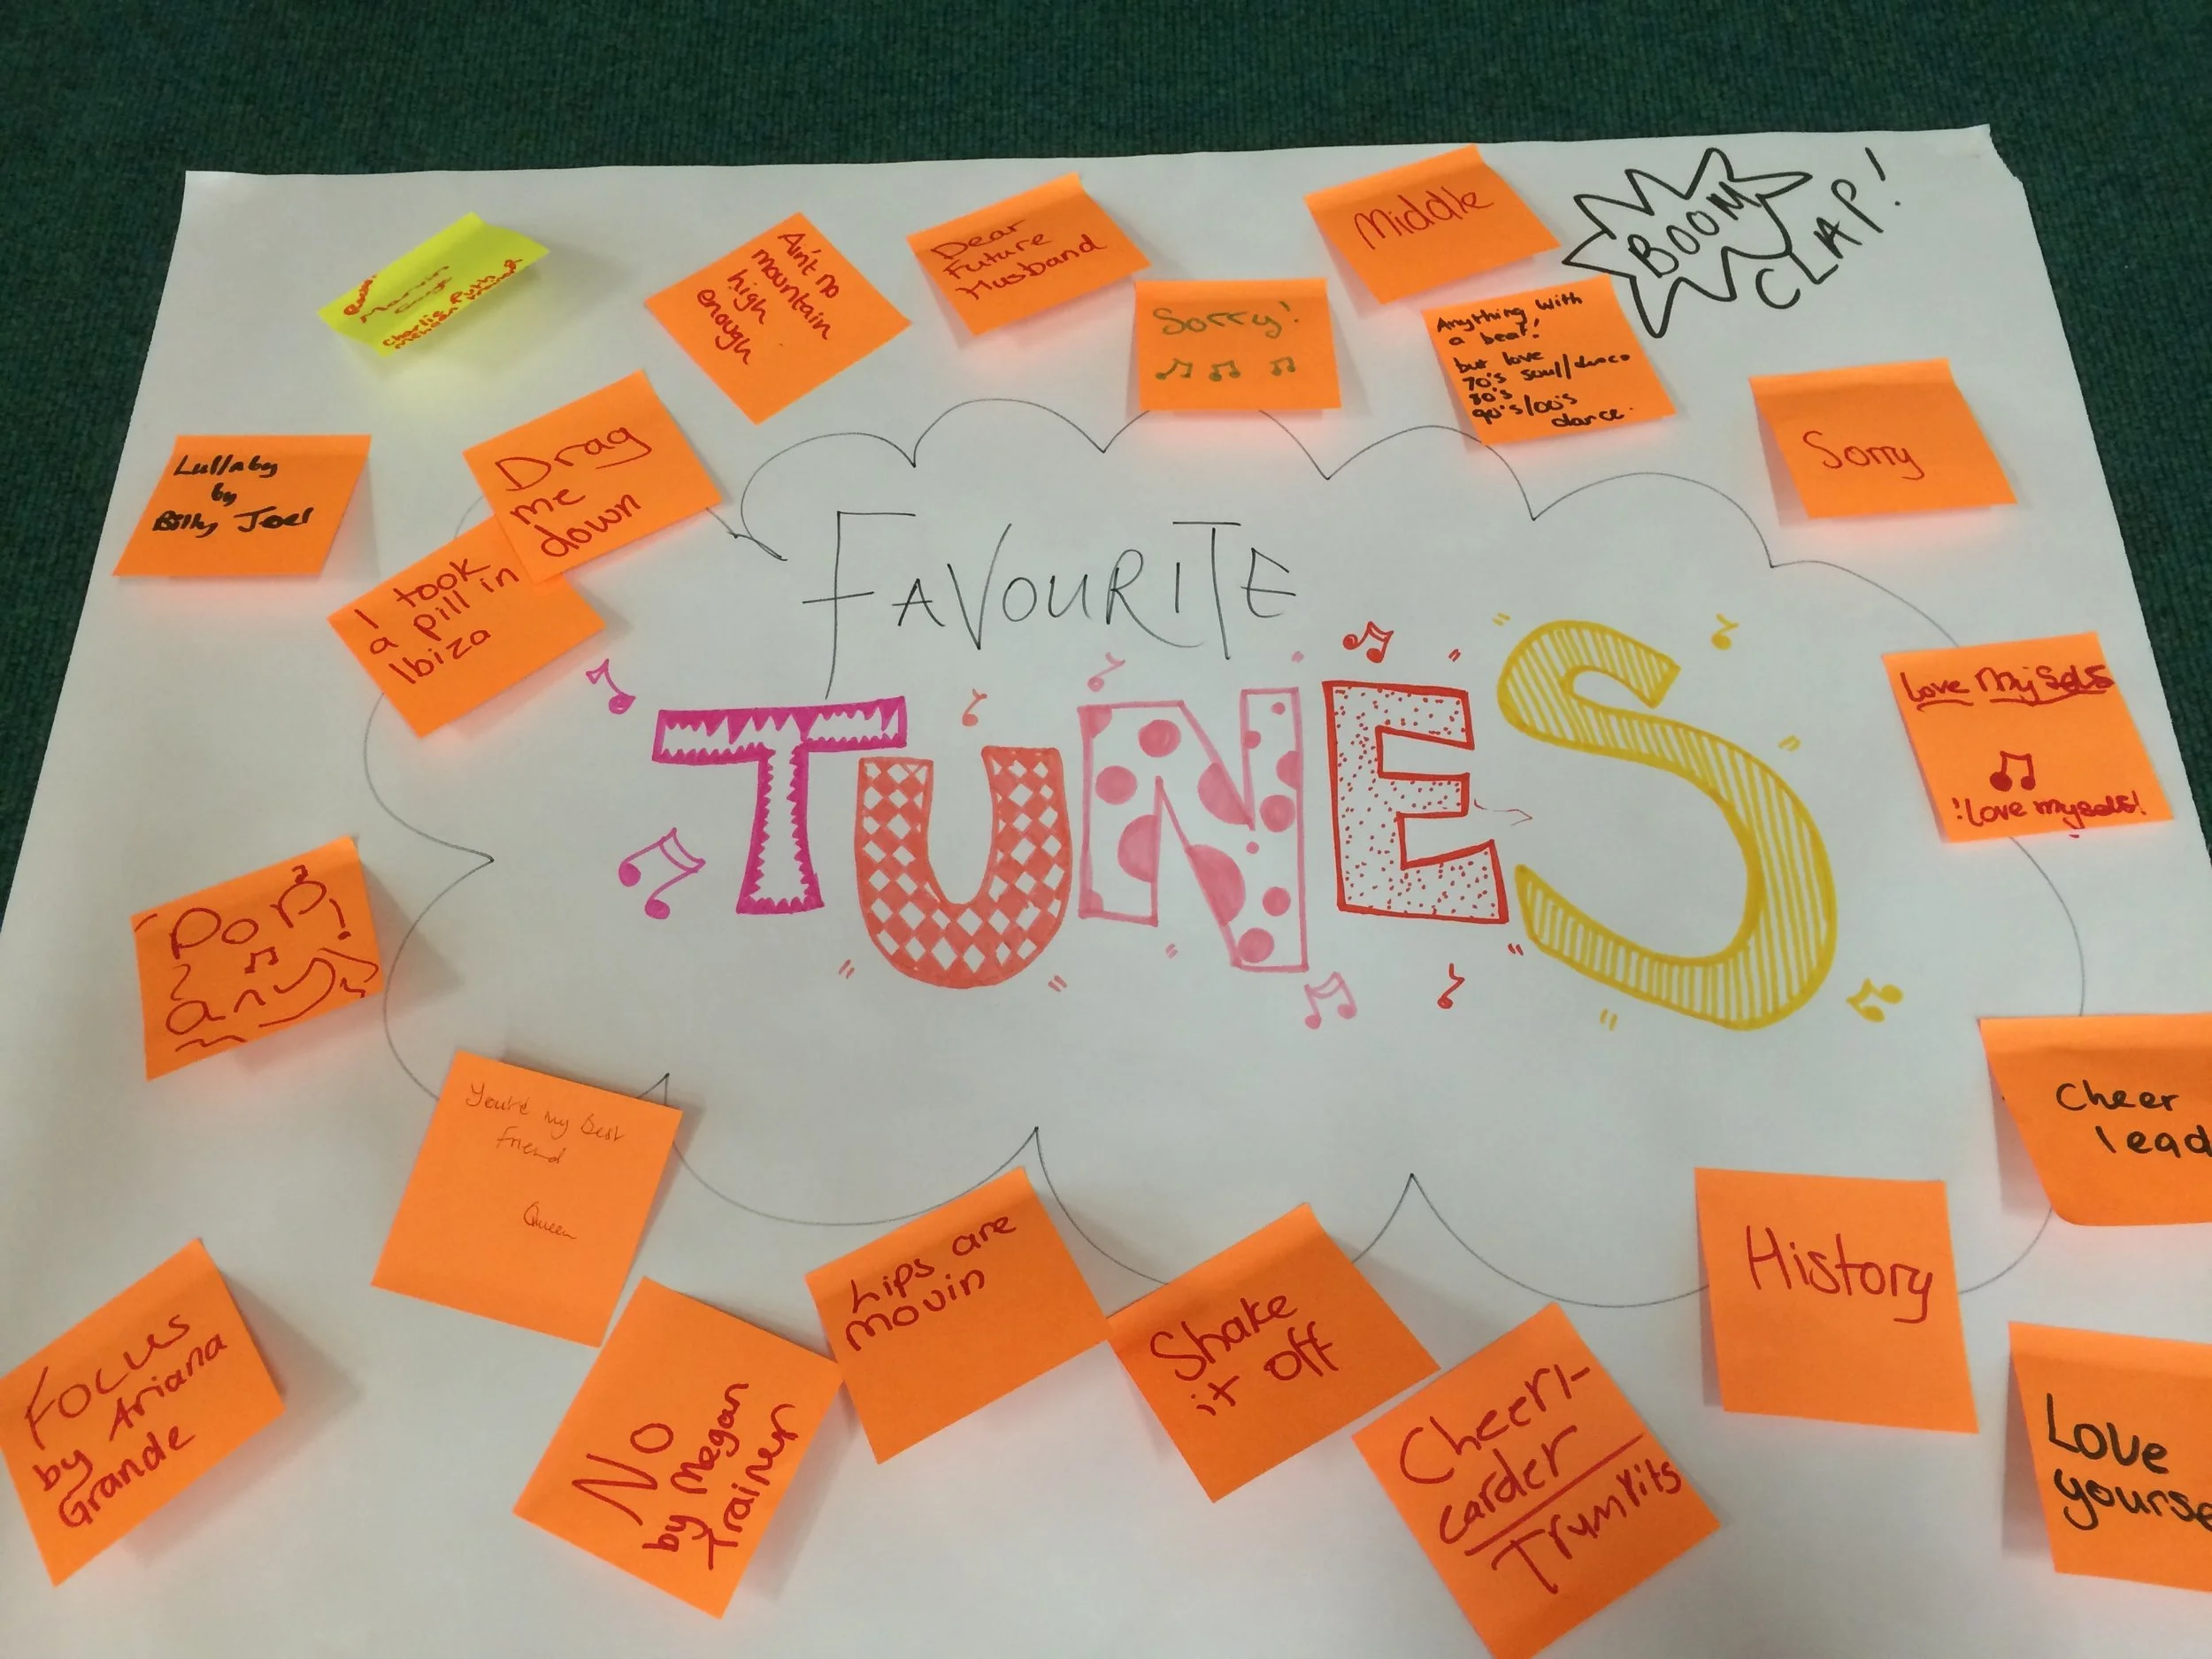 FAVOURITE
TUNES
Marvin
Gaye
Charlie Puth
Ain't no
mountain
high
enough
Dear
Future
Husband
Sorry!
Middle
BOOM
CLAP!
Anything with
a beat!
but love
70's soul/disco
80's
90's/00's
dance.
Sorry
Lullaby
by
Billy Joel
Drag
me
down
I took
a pill in
Ibiza
Love Myself
I love myself!
Pop
any
You're my Best
Friend
Queen
Cheer
lead
History
Lips are
movin
Shake
it off
Focus
by Ariana
Grande
No
by Megan
Trainer
Cheerl-
earder
Trumrits
Love
yourse